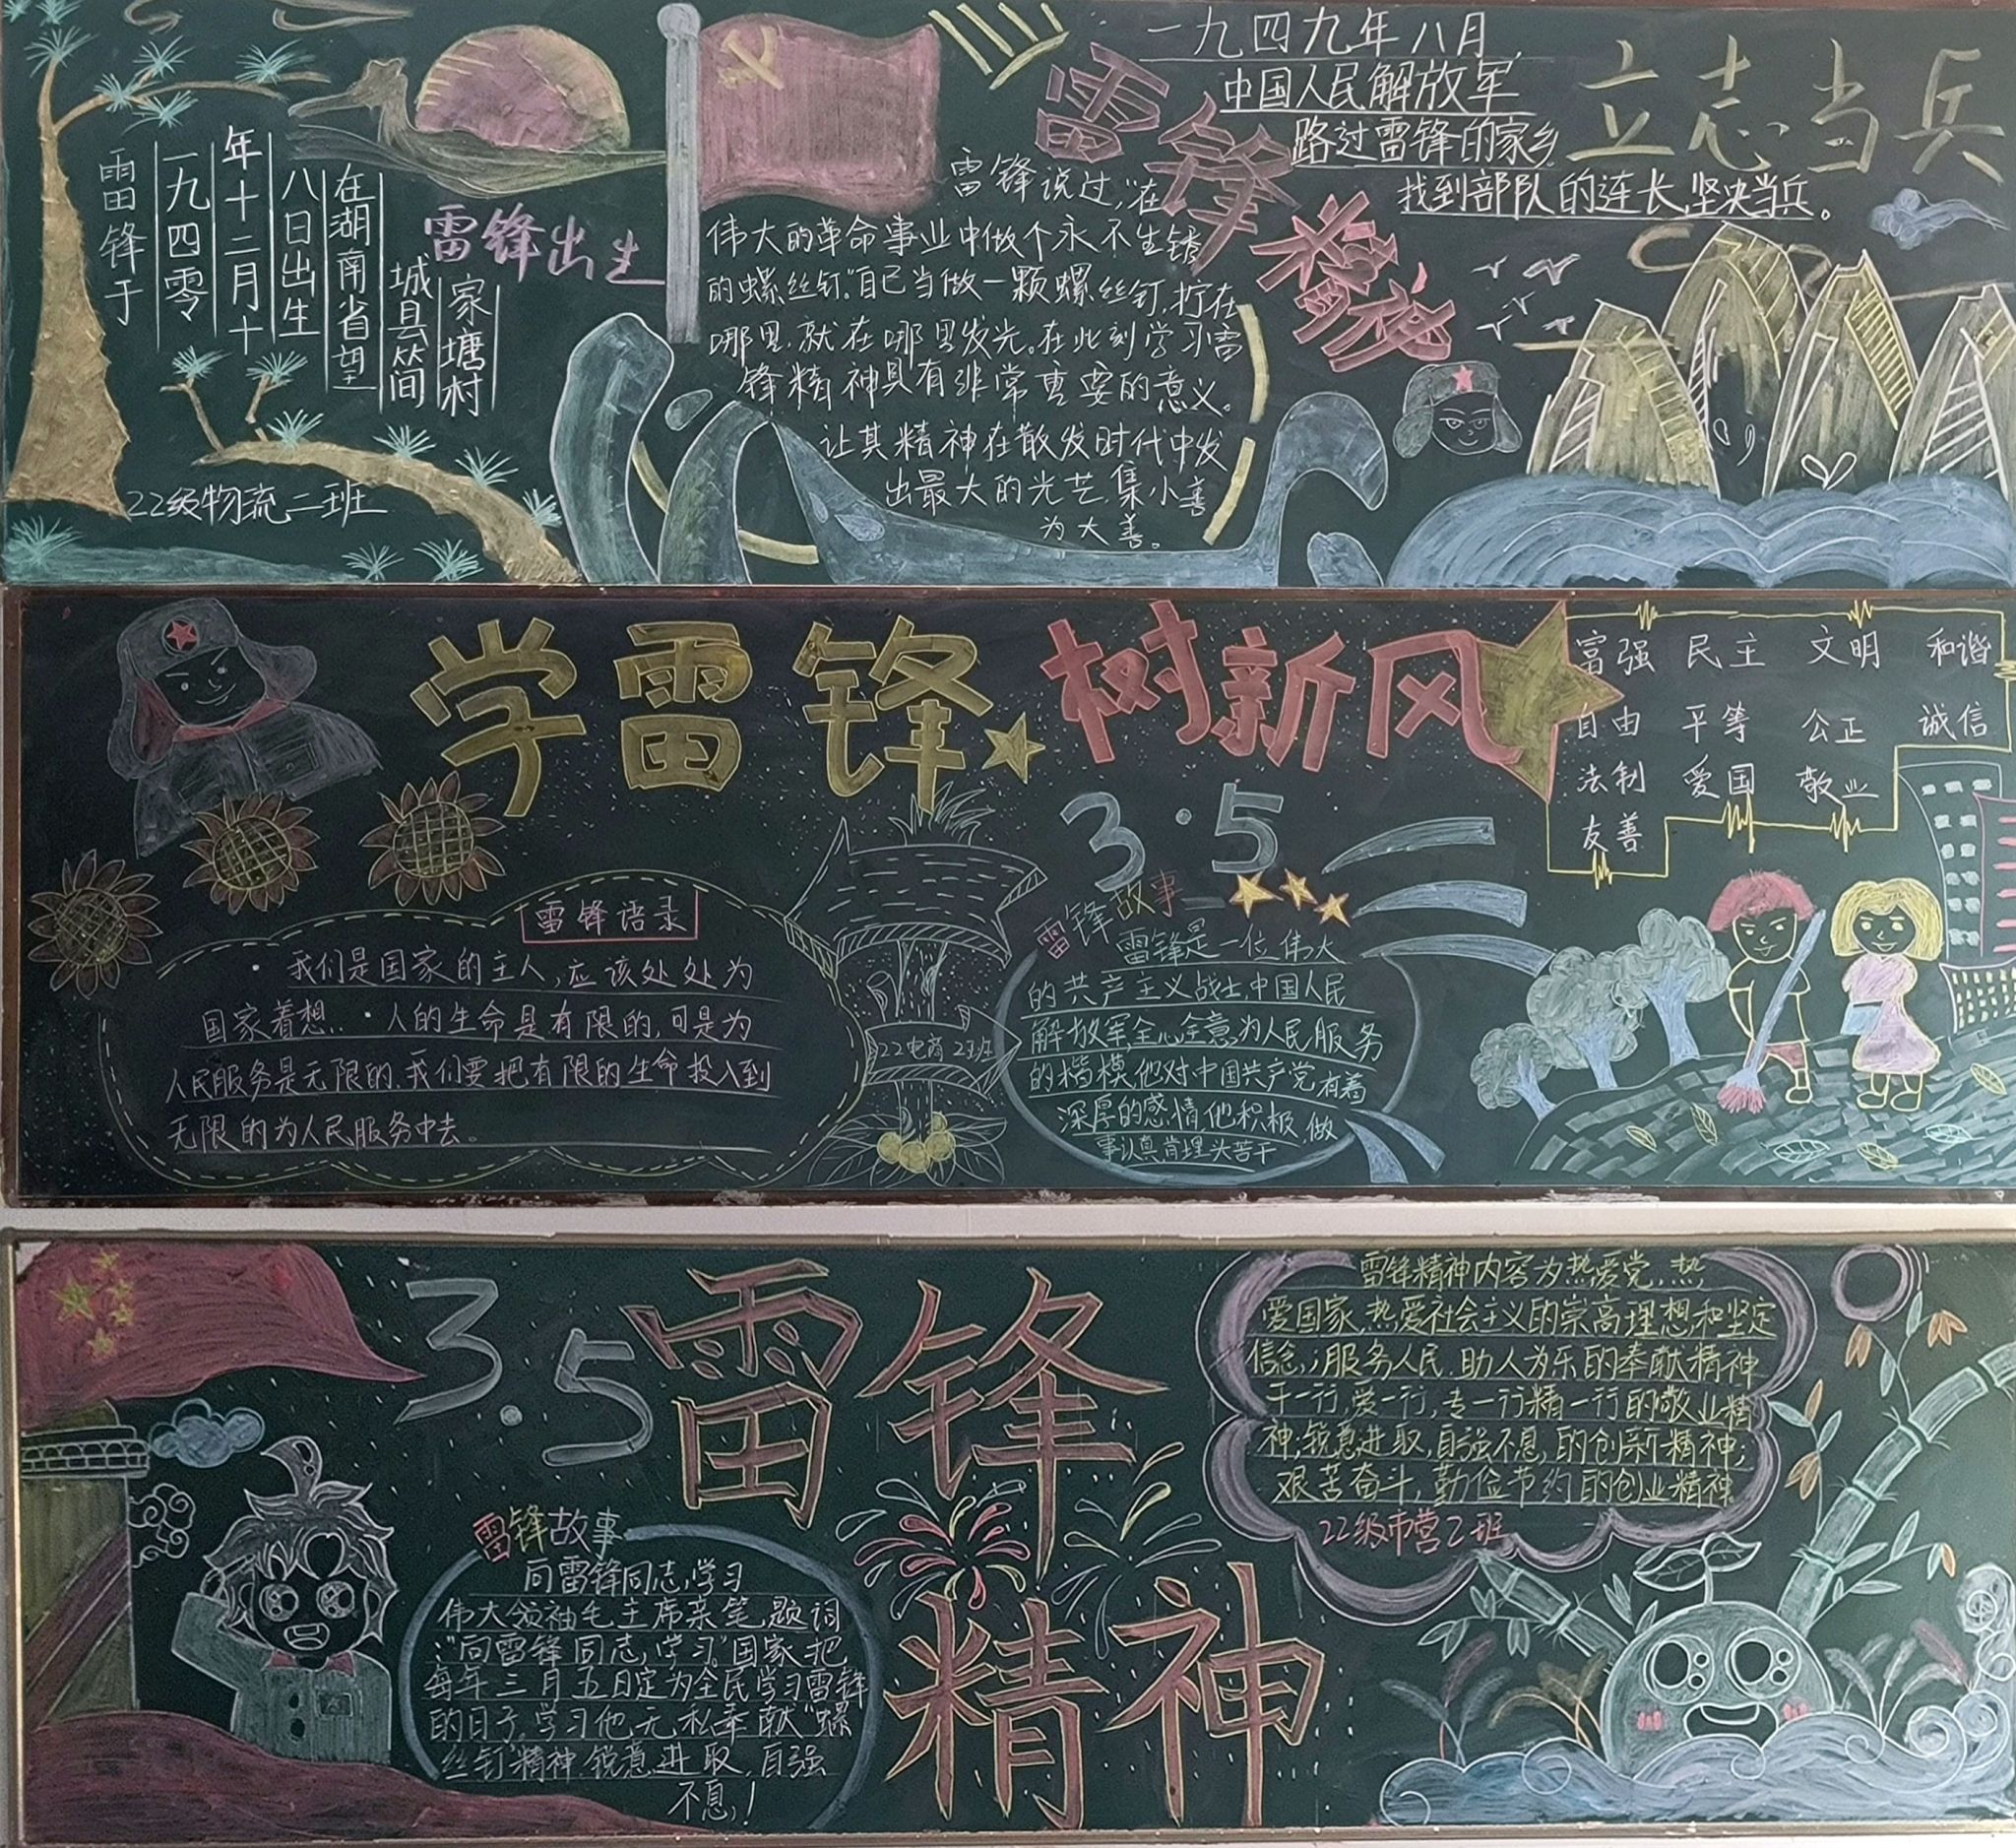 雷锋于
一九四零
年十二月十
八日出生
在湖南省望
城县简
家塘村
雷锋出生
22级物流二班
雷锋说过,"在
伟大的革命事业中做个永不生锈
的螺丝钉."自已当做一颗螺丝钉,拧在
哪里.就在哪里发光。在此刻学习雷
锋精神具有非常重要的意义。
让其精神在散发时代中发
出最大的光芒.集小善
为大善。
雷锋
一九四九年八月,
中国人民解放军
路过雷锋的家乡,
找到部队的连长,坚决当兵。
立志当兵
学雷锋
树新风
3·5
雷锋语录
·我们是国家的主人,应该处处为
国家着想..·人的生命是有限的,可是为
人民服务是无限的.我们要把有限的生命投入到
无限的为人民服务中去。
22电商2班
雷锋故事
雷锋是一位伟大
的共产主义战士,中国人民
解放军全心全意,为人民服务
的楷模,他对中国共产党有着
深厚的感情,他积极,做
事认真肯埋头苦干
富强 民主 文明 和谐
自由 平等 公正 诚信
法制 爱国 敬业
友善
3.5
雷锋
精神
雷锋故事
向雷锋同志,学习
伟大领袖毛主席亲笔,题词
:"向雷锋同志,学习."国家把
每年三月五日定为全民学习雷锋
的日子,学习他,无私奉献"螺
丝钉"精神,锐意进取,自强
不息,!
雷锋精神内容为热爱党,热
爱国家,热爱社会主义的崇高理想和坚定
信念,;服务人民.助人为乐的奉献精神
干一行,爱一行,专一行精一行的敬业精
神;锐意进取,自强不息,的创新精神;
艰苦奋斗,勤俭节约的创业精神
22级市营2班